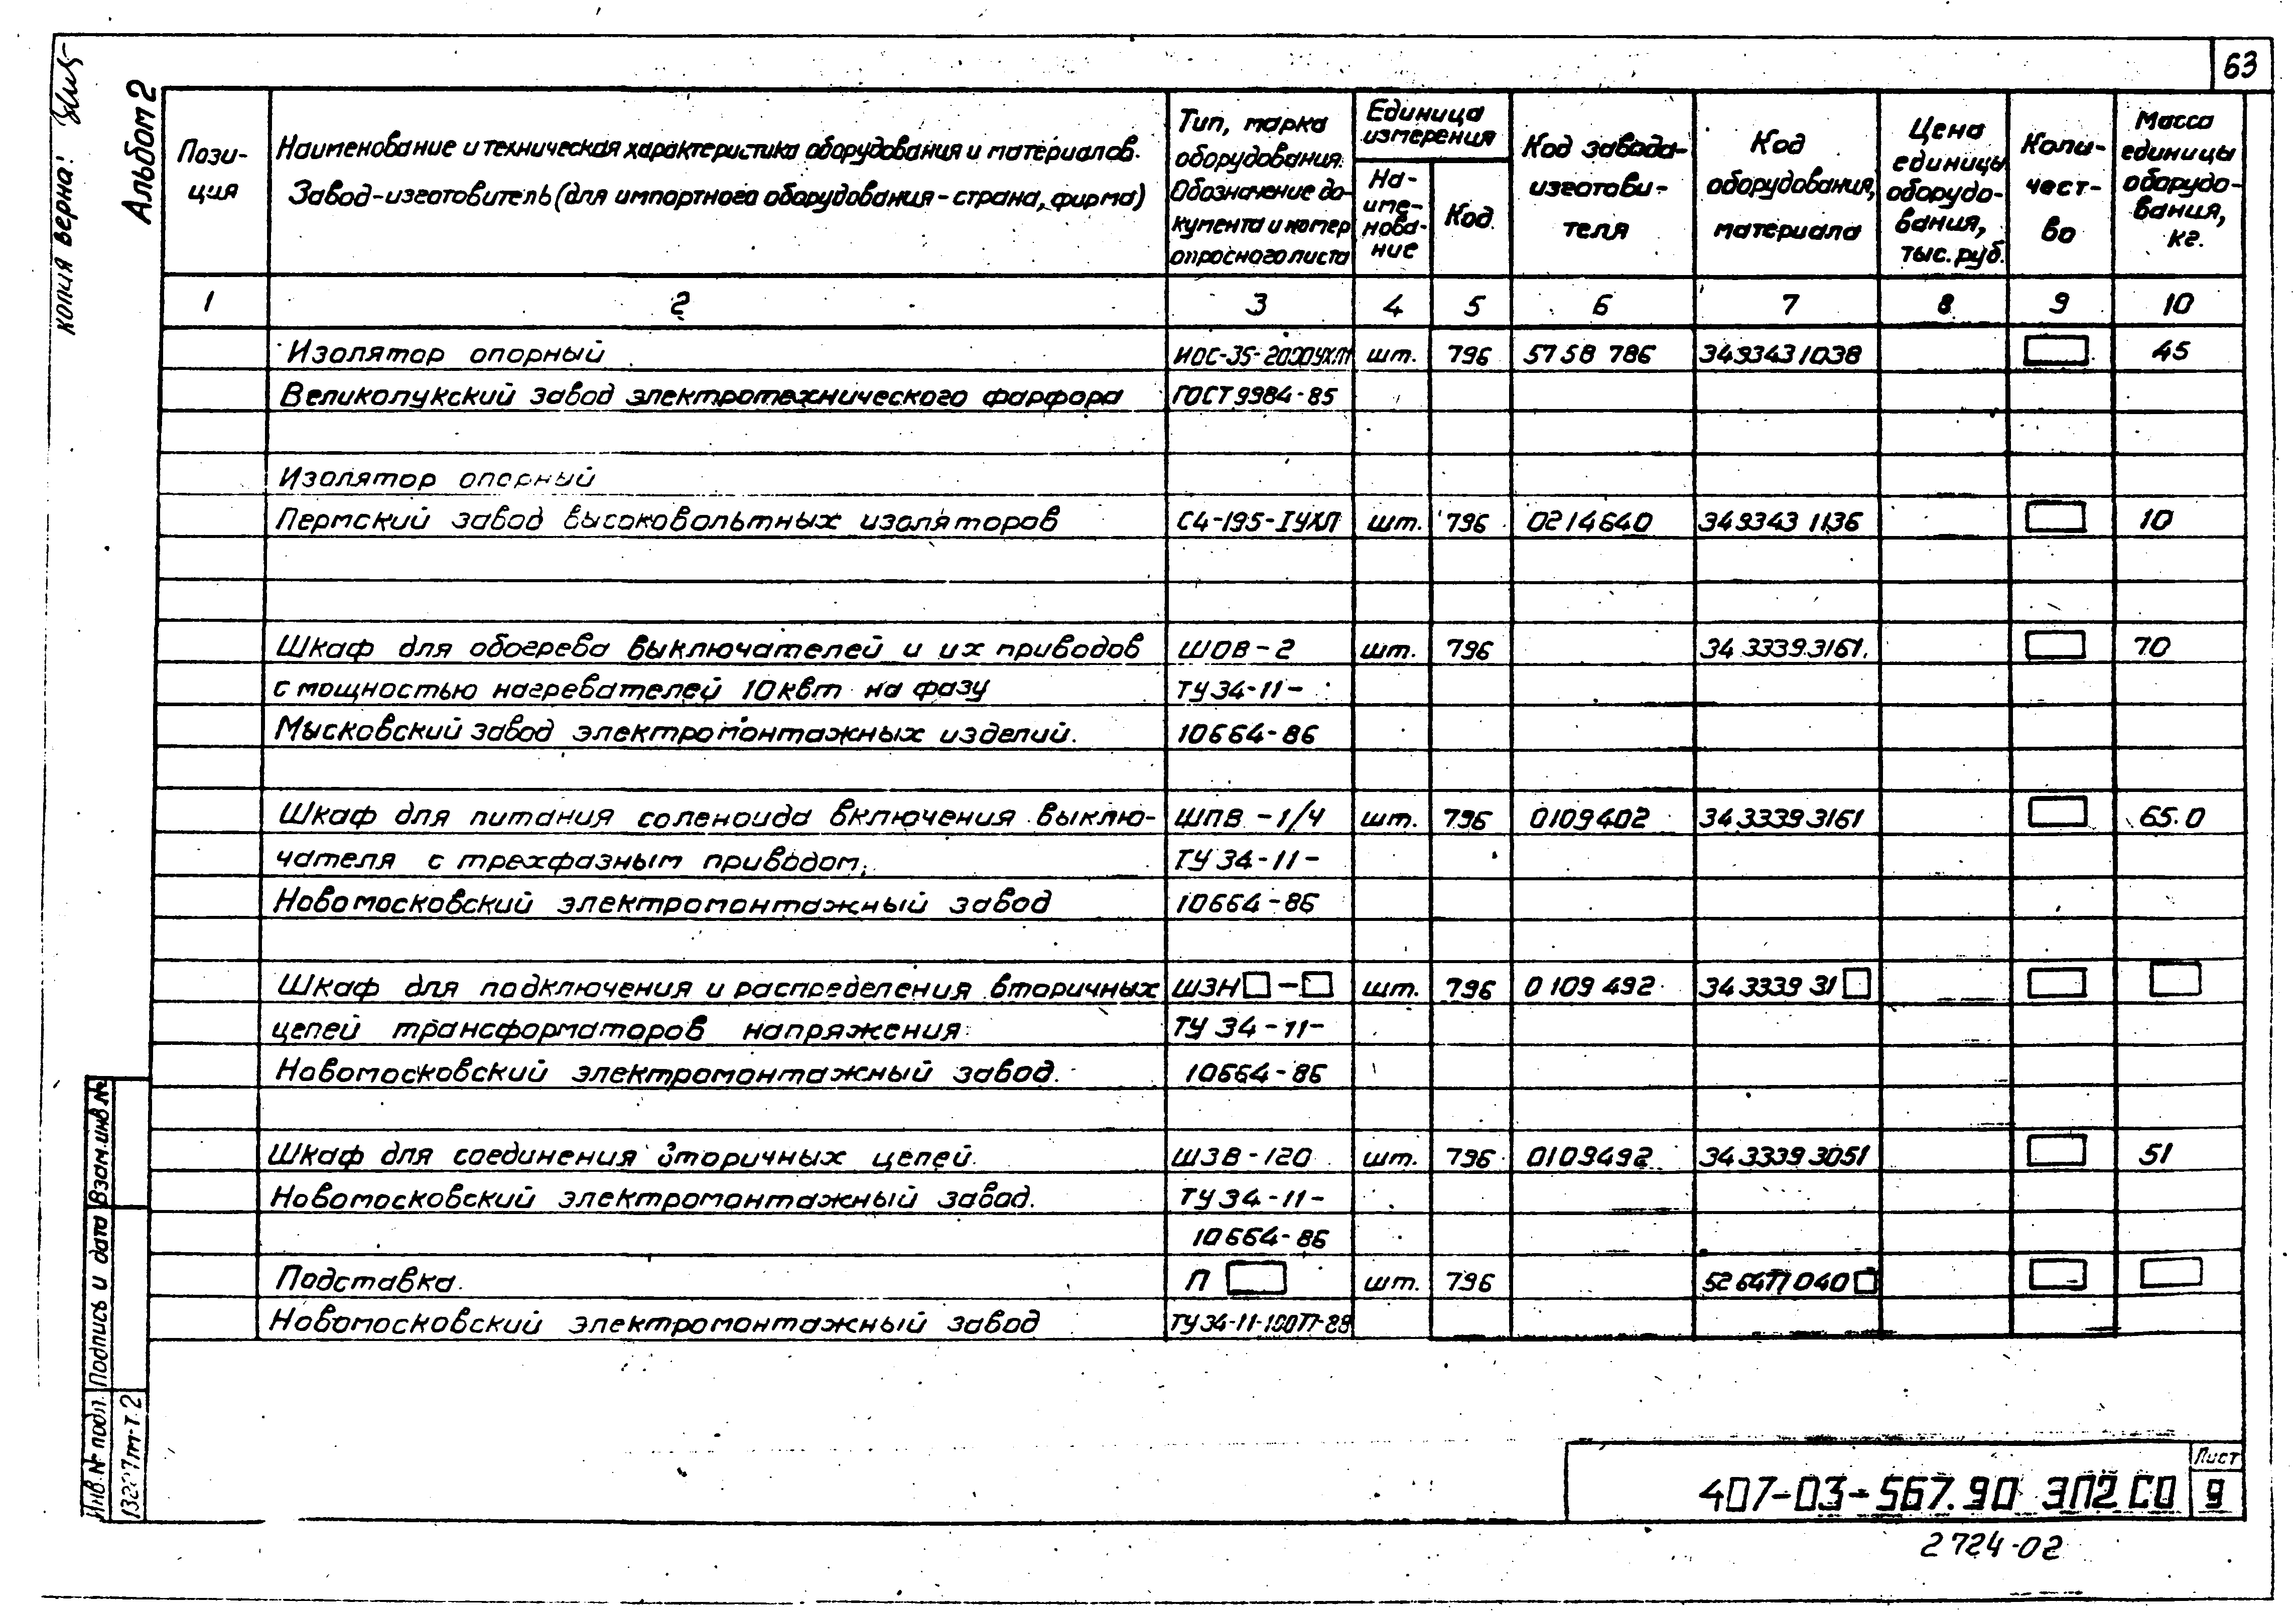 63
Копия верна:
Альбом 2
Пози-
ция
Наименование и техническая характеристика оборудования и материалов.
Завод-изготовитель (для импортного оборудования - страна, фирма)
Тип, марка
оборудования.
Обозначение до-
кумента и номер
опросного листа
Единица
измерения
На-
име-
нова-
ние
Код
Код завода-
изготови-
теля
Код
оборудования,
материала
Цена
единицы
оборудо-
вания,
тыс. руб.
Коли-
чест-
во
Масса
единицы
оборудо-
вания,
кг.
1 2 3 4 5 6 7 8 9 10
Изолятор опорный ИОС-35-2000УХЛ1 шт. 796 5758 786 3493431038 45
Великолукский завод электротехнического фарфора ГОСТ 9984-85
Изолятор опорный
Пермский завод высоковольтных изоляторов С4-195-IУХЛ шт. 796 0214640 349343 1136 10
Шкаф для обогрева выключателей и их приводов ШОВ-2 шт. 796 34 3339 3161. 70
с мощностью нагревателей 10 квт на фазу ТУ 34-11-
Мысковский завод электромонтажных изделий. 10664-86
Шкаф для питания соленоида включения выклю- ШПВ-1/4 шт. 796 0109402 34 3339 3161 65.0
чателя с трехфазным приводом, ТУ 34-11-
Новомосковский электромонтажный завод 10664-86
Шкаф для подключения и распределения вторичных ШЗН□-□ шт. 796 0109 492 34 3339 31□
цепей трансформаторов напряжения ТУ 34-11-
Новомосковский электромонтажный завод. 10664-86
Шкаф для соединения вторичных цепей. ШЗВ-120 шт. 796 0109492 34 3339 3051 51
Новомосковский электромонтажный завод. ТУ 34-11-
10664-86
Подставка. П□ шт. 796 52 6477 040□
Новомосковский электромонтажный завод ТУ 34-11-10077-88
Инв. № подл.
Подпись и дата
Взам. инв №
407-03-567.90 ЭП2 СО
Лист
9
2724-02